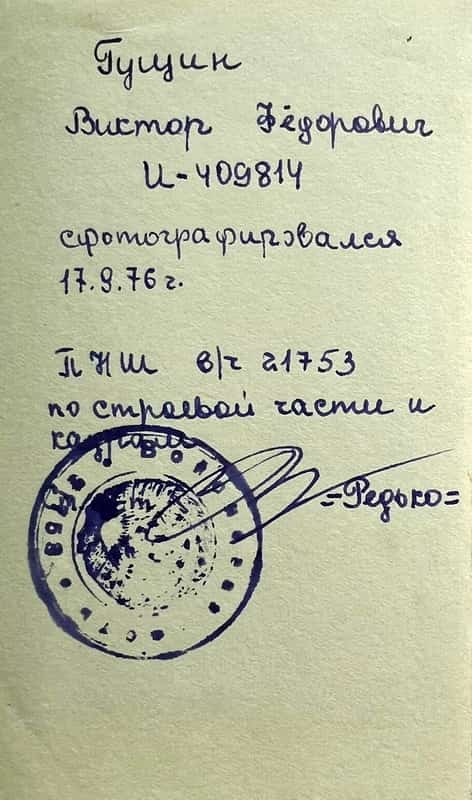 Гущин
Виктор Фёдорович
И-409814
сфотографировался
17.9.76 г.
ПНШ в/ч 21753
по строевой части и
кадрам
=Редько=